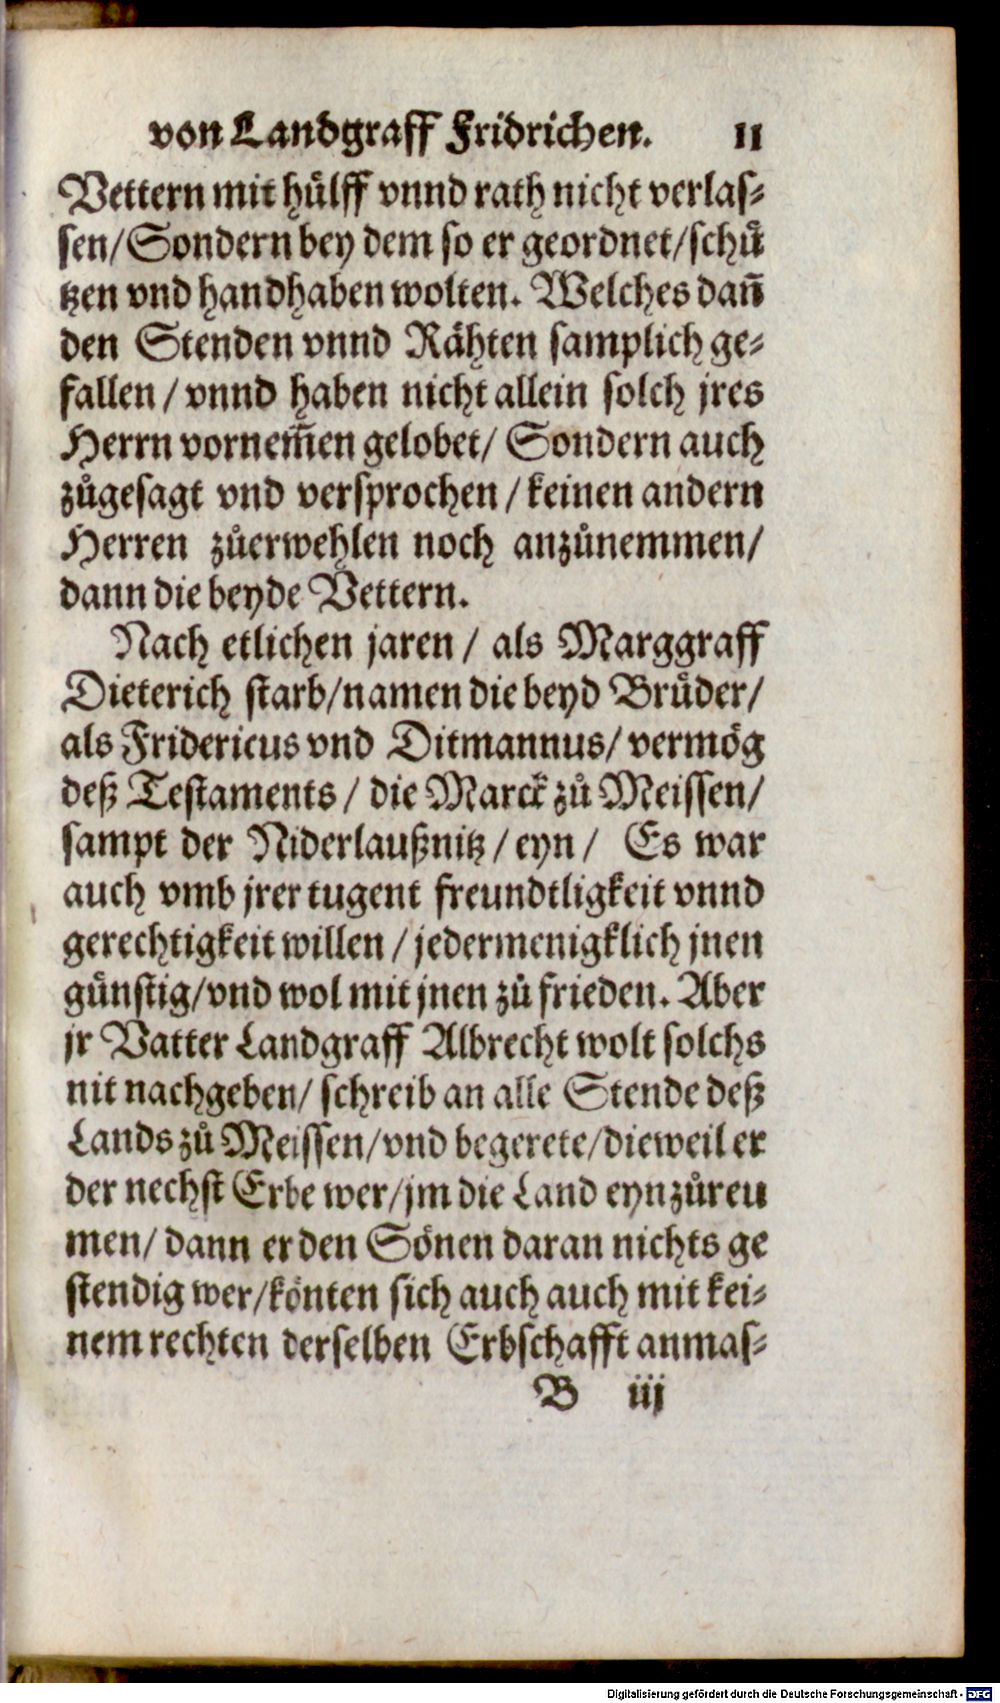 von Landgraff Fridrichen. 11
Vettern mit hülff vnnd rath nicht verlas⸗
sen/Sondern bey dem so er geordnet/schü
tzen vnd handhaben wolten. Welches dañ
den Stenden vnnd Rähten samplich ge⸗
fallen/ vnnd haben nicht allein solch jres
Herrn vornem̃en gelobet/ Sondern auch
zůgesagt vnd versprochen/ keinen andern
Herren zůerwehlen noch anzůnemmen/
dann die beyde Vettern.
Nach etlichen jaren/ als Marggraff
Dieterich starb/namen die beyd Brüder/
als Fridericus vnd Ditmannus/ vermög
deß Testaments/ die Marck zů Meissen/
sampt der Niderlaußnitz/ eyn/ Es war
auch vmb jrer tugent freundtligkeit vnnd
gerechtigkeit willen/ jedermenigklich jnen
günstig/vnd wol mit jnen zů frieden. Aber
jr Vatter Landgraff Albrecht wolt solchs
nit nachgeben/ schreib an alle Stende deß
Lands zů Meissen/vnd begerete/dieweil er
der nechst Erbe wer/jm die Land eynzůreu
men/ dann er den Sönen daran nichts ge
stendig wer/könten sich auch auch mit kei⸗
nem rechten derselben Erbschafft anmas⸗
B iij
Digitalisierung gefördert durch die Deutsche Forschungsgemeinschaft - DFG